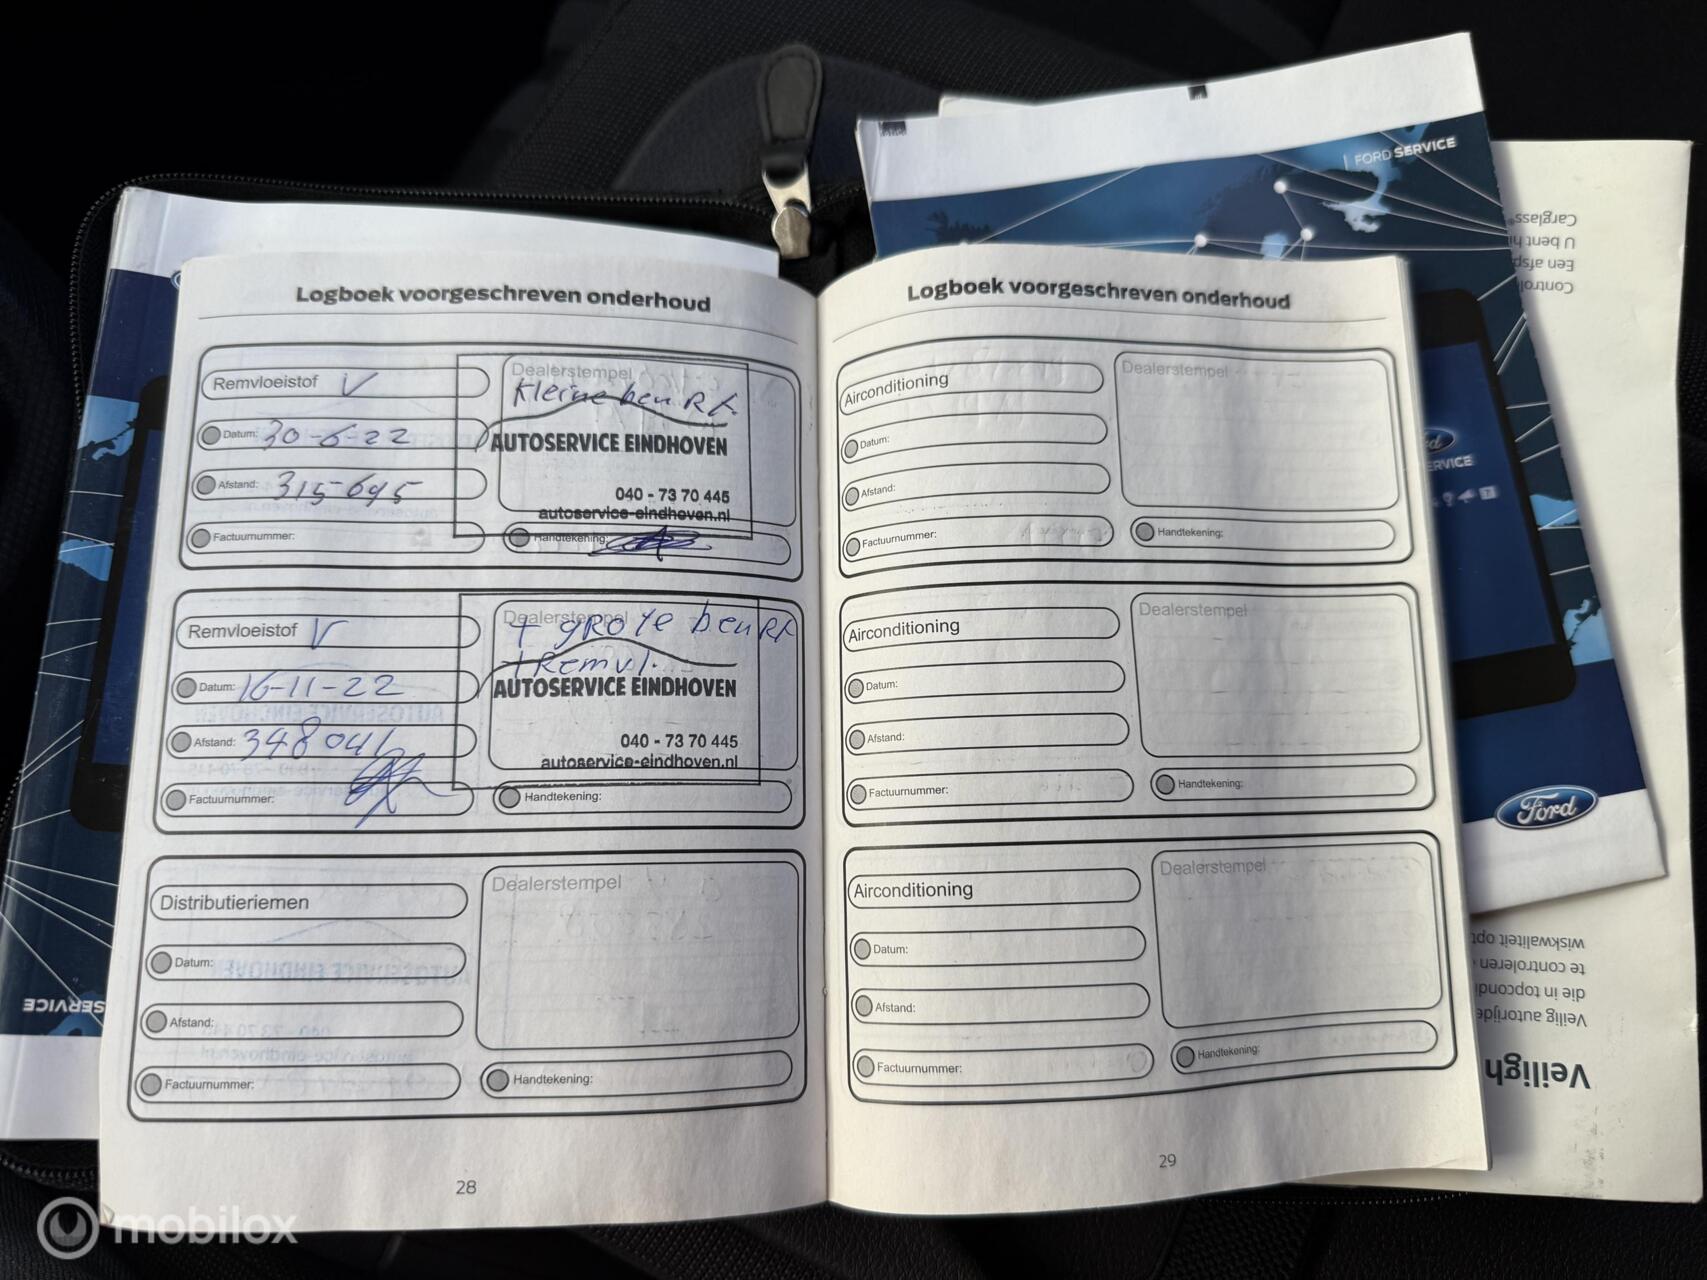 FORD SERVICE
Carglass®
U bent hi
Een afsp
Control
Logboek voorgeschreven onderhoud
Remvloeistof V
Datum: 30-6-22
Afstand: 315-695
Factuurnummer:
Dealerstempel
Kleine beurt
AUTOSERVICE EINDHOVEN
040 - 73 70 445
autoservice-eindhoven.nl
Handtekening:
Remvloeistof V
Datum: 16-11-22
Afstand: 348041
Factuurnummer:
Dealerstempel
+ grote beurt
+ Remvl.
AUTOSERVICE EINDHOVEN
040 - 73 70 445
autoservice-eindhoven.nl
Handtekening:
Distributieriemen
Datum:
Afstand:
Factuurnummer:
Dealerstempel
Handtekening:
28
Logboek voorgeschreven onderhoud
Airconditioning
Datum:
Afstand:
Factuurnummer:
Dealerstempel
Handtekening:
Airconditioning
Datum:
Afstand:
Factuurnummer:
Dealerstempel
Handtekening:
Airconditioning
Datum:
Afstand:
Factuurnummer:
Dealerstempel
Handtekening:
29
Ford
SERVICE
Veiligh
Veilig autorijde
die in topcondi
te controleren
wiskwaliteit opt
mobilox